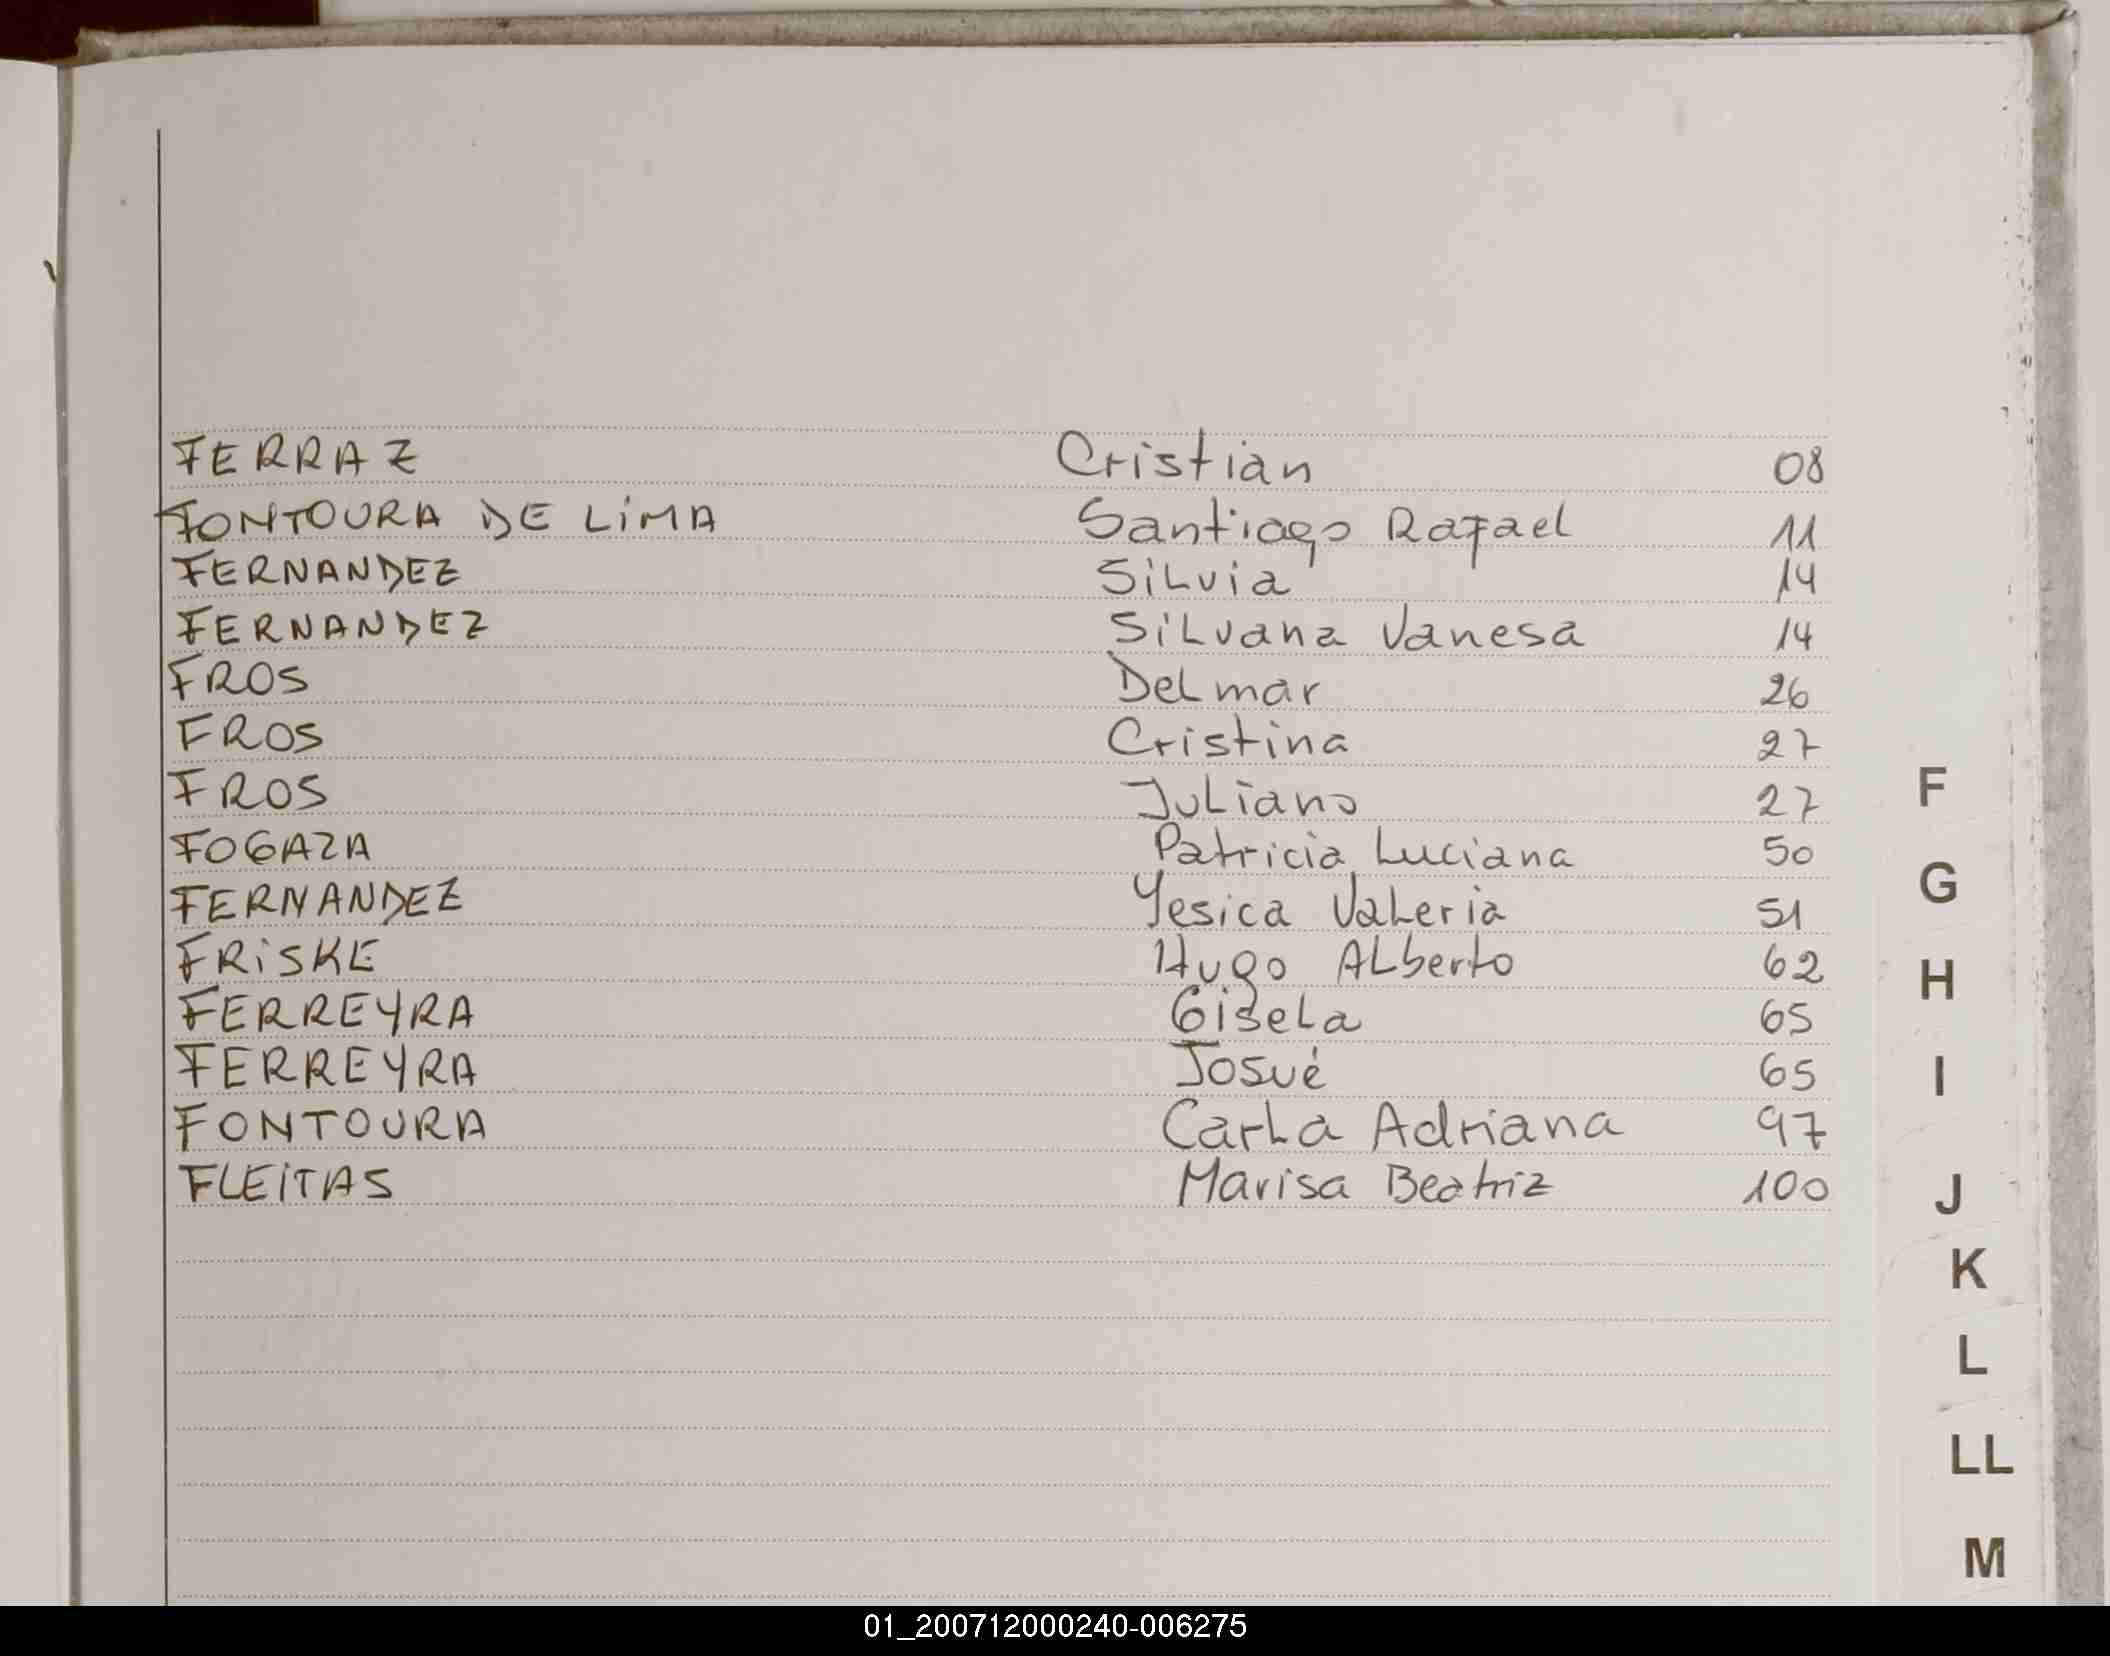 FERRAZ Cristian 08
FONTOURA DE LiMA Santiago Rafael 11
FERNANDEZ SiLvia 14
FERNANDEZ SiLvana Vanesa 14
FROS DeLmar 26
FROS Cristina 27
FROS JuLiano 27
FOGAZA Patricia Luciana 50
FERNANDEZ Yesica VaLeria 51
FRiSKE Hugo ALberto 62
FERREYRA GiseLa 65
FERREYRA Josué 65
FONTOURA CarLa Adriana 97
FLEiTAS Marisa Beatriz 100
F
G
H
I
J
K
L
LL
M
01_200712000240-006275